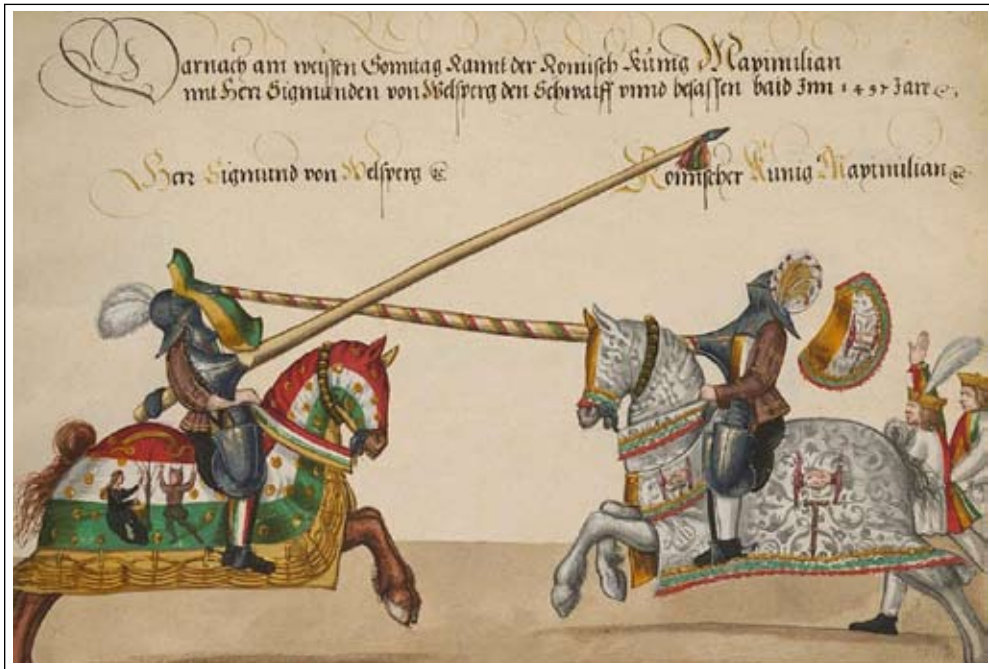 Darnach am weissen Sonntag Rannt der Romisch Künig Maximilian
mit Herr Sigmunden von Welsperg den Schwaiff vnnd besassen baid Inn 1497 Jare
Herr Sigmund von Welsperg
Romischer Kunig Maximilian